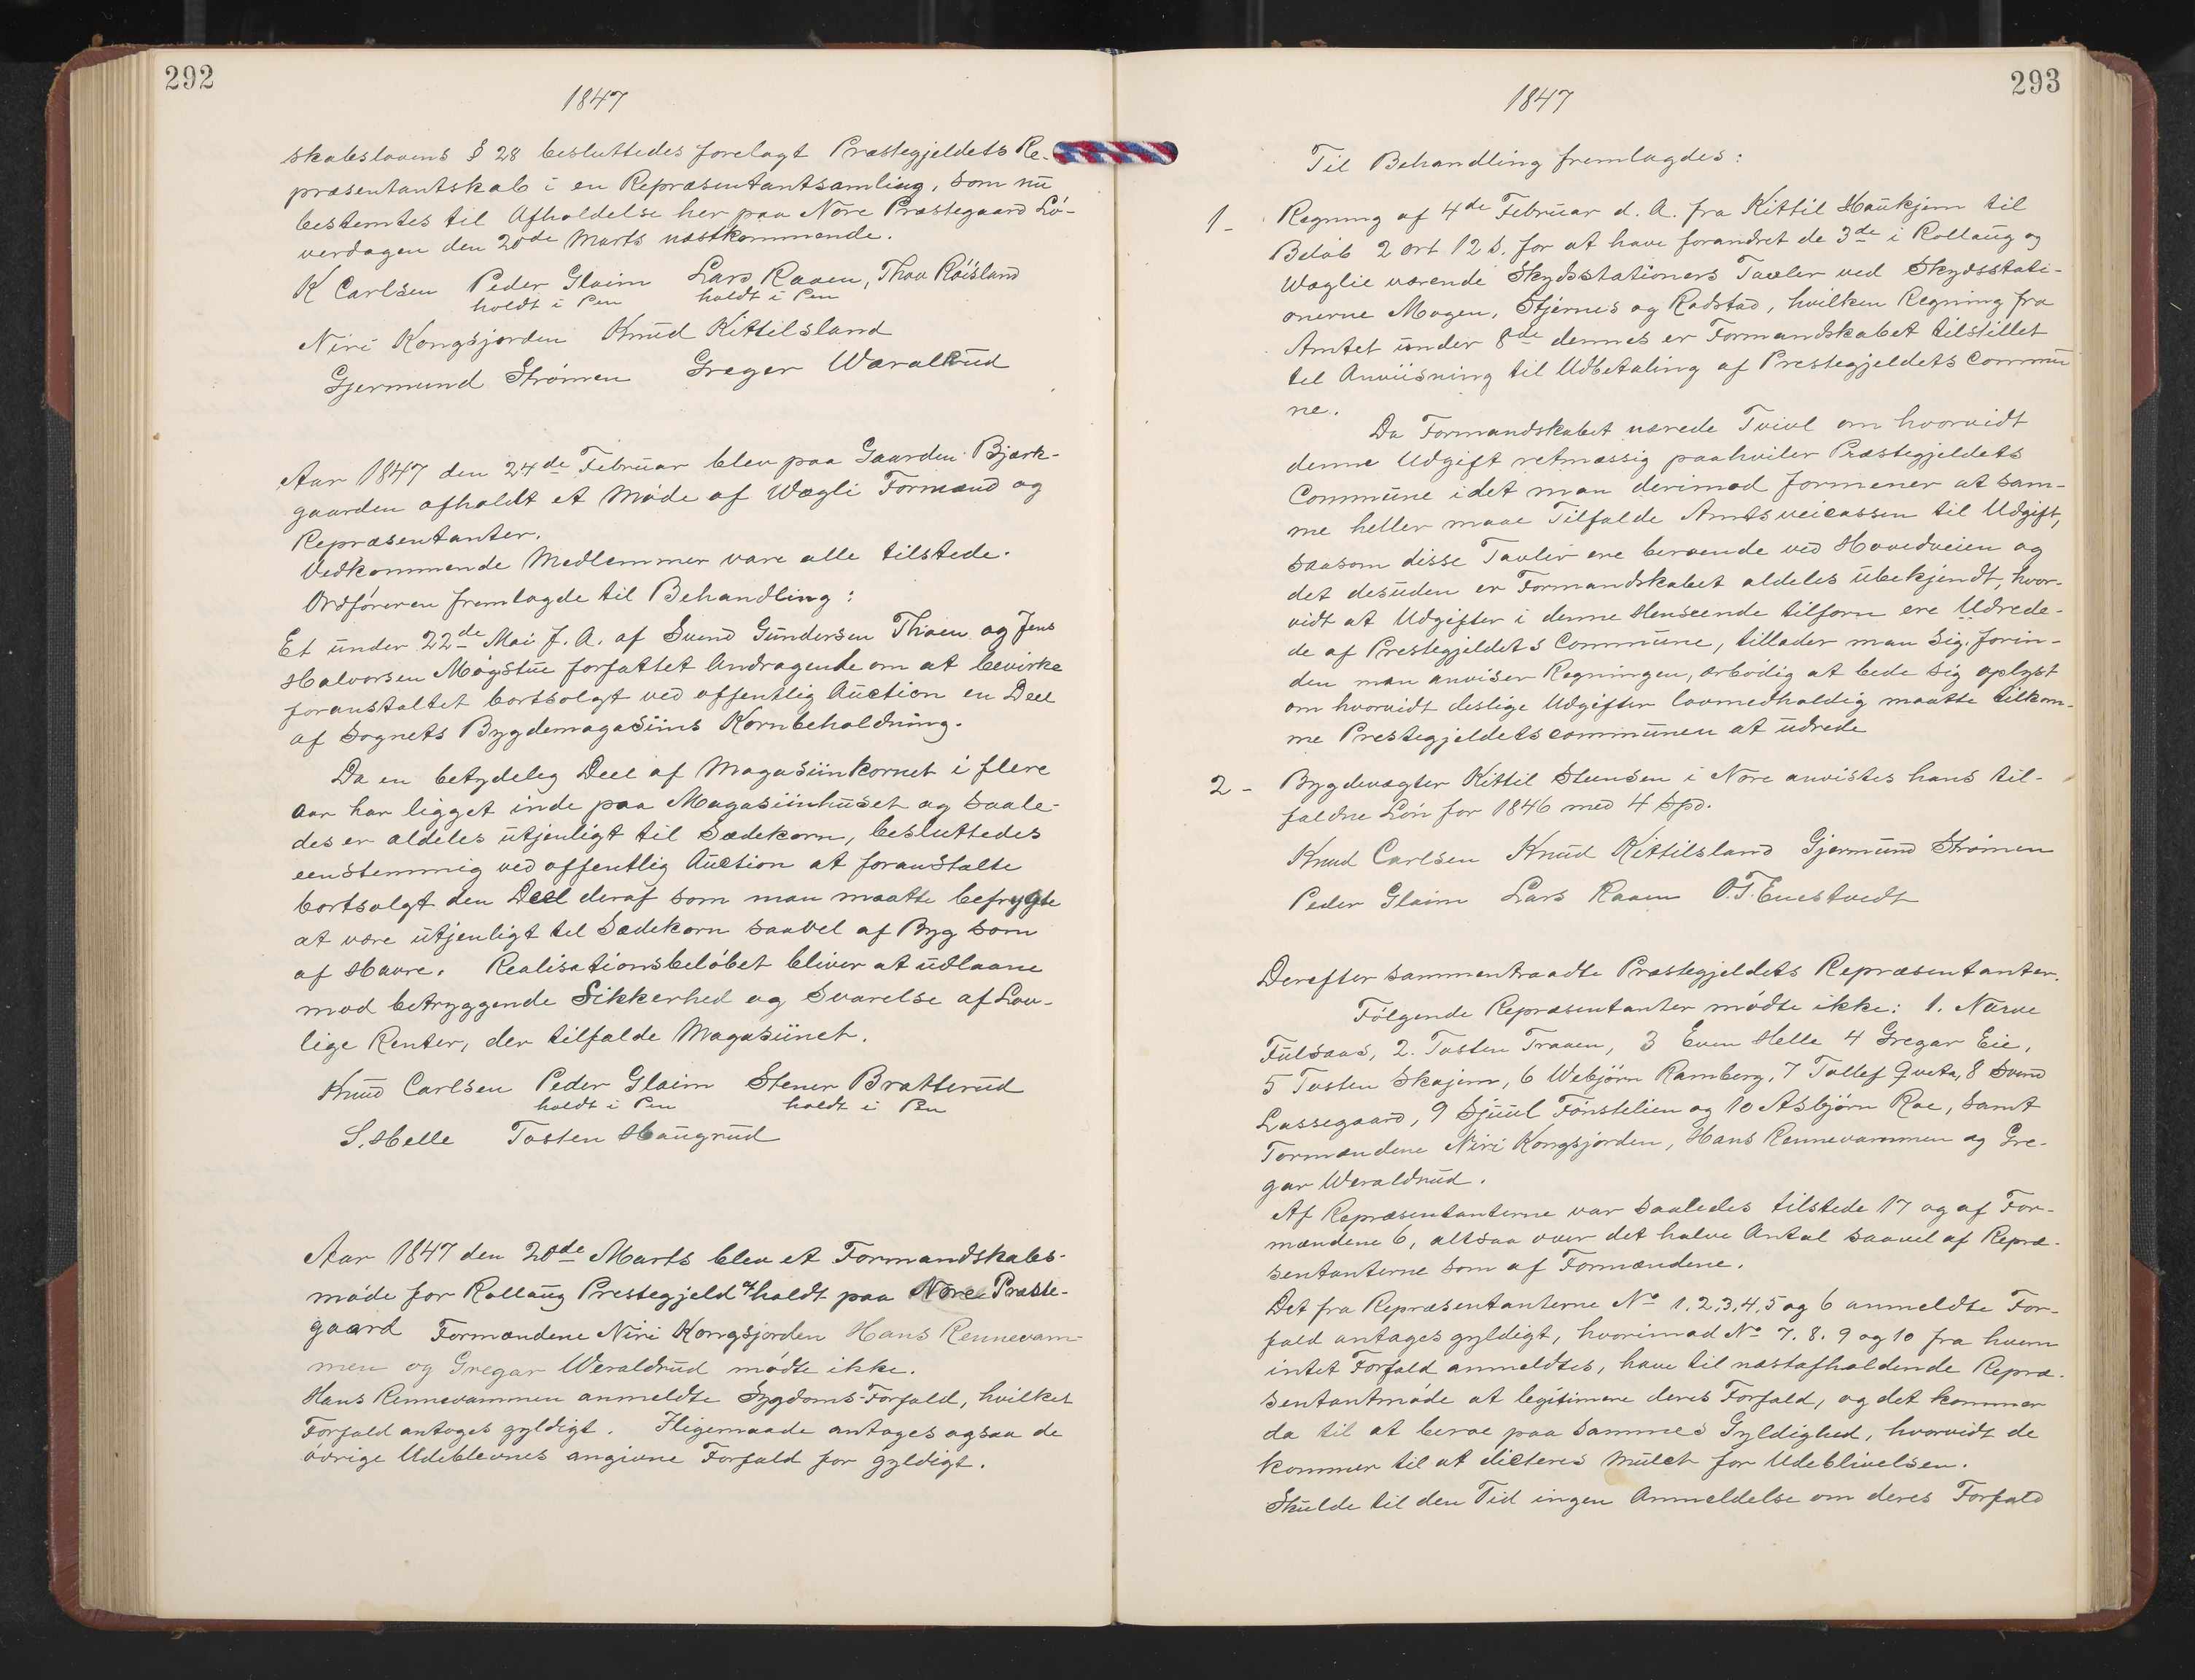 292
1847
skabslovens § 28 besluttedes forelagt Præstegjeldets Re-
præsentantskab i en Repræsentantsamling, som nu
bestemtes til Afholdelse her paa Nore Præstegaard Lö-
verdagen den 20de Marts næstkommende.
K Carlsen Peder Glaim Lars Raaen, Thov Röisland
holdt i Pen holdt i Pen
Niri Kongsjorden Knud Kittilsland
Gjermund Strömen Greger Wæraldrud
Aar 1847 den 24de Februar blev paa Gaarden Bjærk-
gaarden afholdt et Möde af Wægli Formænd og
Repræsentanter.
Vedkommende Medlemmer vare alle tilstede.
Ordföreren fremlagde til Behandling:
Et under 22de Mai f. A. af Svend Gundersen Thoen og Jens
Halvorsen Mögstue forfattet Andragende om at bevirke
foranstaltet bortsolgt ved offentlig Auction en Deel
af Sognets Bygdemagasiins Kornbeholdning.
Da en betydelig Deel af Magasiinkornet i flere
Aar har ligget inde paa Magasiinhuset og saale-
des er aldeles utjenligt til Sædekorn, besluttedes
eenstemmig ved offentlig Auction at foranstalte
bortsolgt den Deel deraf som man maatte befrygte
at være utjenligt til Sædekorn saavel af Byg som
af Havre. Realisationsbelöbet bliver at udlaane
mod betryggende Sikkerhed og Svarelse af Lov-
lige Renter, der tilfalde Magasiinet.
Knud Carlsen Peder Glaim Stener Bratterud
holdt i Pen holdt i Pen
S. Helle Tosten Haugrud
Aar 1847 den 20de Marts blev et Formandskabs-
möde for Rollaug Prestegjeld afholdt paa Nore Præste-
gaard Formændene Niri Kongsjorden Hans Rennevam-
men og Gregar Weraldrud mödte ikke.
Hans Rennevammen anmeldte Sygdoms-Forfald, hvilket
Forfald antoges gyldigt. Iligemaade antoges ogsaa de
övrige Udeblevnes angivne Forfald for gyldigt.
293
1847
Til Behandling fremlagdes:
1- Regning af 4de Februar d. A. fra Kittil Haukjem til
Belöb 2 ort 12 s. for at have forandret de 3de i Rollaug og
Wæglie værende Skydsstationers Tavler ved Skydsstati-
onerne Mogen, Stjernes og Rodstad, hvilken Regning fra
Amtet under 8de dennes er Formandskabet tilstillet
til Anviisning til Udbetaling af Prestegjeldets Commu
ne.
Da Formandskabet nærede Tvivl om hvorvidt
denne Udgift retmæssig paahviler Præstegjeldets
Commune idet man derimod formener at sam-
me heller maae Tilfalde Amtsveicassen til Udgift,
saasom disse Tavler ere beroende ved Hovedveien og
det desuden er Formandskabet aldeles ubekjendt, hvor-
vidt at Udgifter i denne Henseende tilforn ere Udrede-
de af Prestegjeldets Commune, tillader man sig, forin-
den man anviser Regningen, ærbödig at bede sig oplyst
om hvorvidt deslige Udgifter lovmedholdig maatte tilkom-
me Prestegjeldetscommunen at udrede
2- Bygdevægter Kittil Steensen i Nore anvistes hans til-
faldne Lön for 1846 med 4 Spd.
Knud Carlsen Knud Kittilsland Gjermund Strömen
Peder Glaim Lars Raaen O.T. Enestvedt
Derefter sammentraadte Præstegjeldets Repræsentanter.
Fölgende Repræsentanter mödte ikke: 1. Narve
Fulsaas, 2. Tosten Traaen, 3 Even Helle 4 Gregar Eie,
5 Tosten Skajem, 6 Webjörn Ramberg, 7 Tollef Qveta, 8 Svend
Lassegaard, 9 Sjuul Fönstelien og 10 Asbjörn Roe, samt
Formændene Niri Kongsjorden, Hans Rennevammen og Gre-
gar Weraldrud.
Af Repræsentanterne var saaledes tilstede 17 og af For-
mændene 6, altsaa over det halve Antal saavel af Repræ-
sentanterne som af Formændene.
Det fra Repræsentanterne No 1,2,3,4,5 og 6 anmeldte For-
fald antages gyldigt, hvorimod No 7. 8. 9 og 10 fra hvem
intet Forfald anmeldtes, have til næstafholdende Repræ-
sentantmöde at legitimere deres Forfald, og det kommer
da til at beroe paa Sammes Gyldighed, hvorvidt de
kommer til at dicteres Mulct for Udeblivelsen.
Skulde til den Tid ingen Anmeldelse om deres Forfald